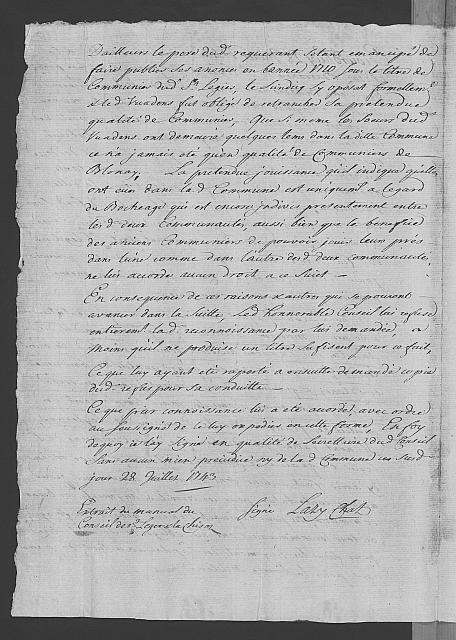 D'ailleurs le pere dud. requerant s'etant emancipé de
faire publier ses anonces en l'année 1740 sous le titre de
Communier dud. St. Legier, le Sindiq s'y oposat formellemt.
& led. Vuadens fut obligé de retrancher sa pretendue
qualité de Communier, Que si meme les Soeurs dud.
Vuadens ont demeuré quelques tems dans la ditte Commune
ce n'a jamais eté qu'en qualité de Communiers de
Blonay, La pretendue jouissance qu'il indique qu'elles
ont eües dans lad. Commune est uniquemt. a l'egard
du Bochéage qui est encor indivis presentement entre
lesd. deux Communautés, aussi bien que le benefice
des anciens Communiers de pouvoir jouir leurs prés
dans l'une comme dans l'autre desd. deux communautés
ne lui accorde aucun droit a ce sujet —
En consequence de ces raisons & autres qui se pouront
avancer dans la suitte, Led. Honnorable Conseil lui refuse
entieremt. lad. reconnoissance par lui demandée, a
moins qu'il ne produise un titre sufisent pour ce fait,
Ce que luy ayant eté raporté a ensuitte demandé copie
dud. refus pour sa conduitte —
Ce que par connoissance lui a eté accordé, avec ordre
au sousigné de le luy expedier en cette forme, En foy
dequoy je l'ay signé en qualité de Secretaire dud. Conseil
sans aucun mien prejudice ny de lad. Commune ce susd.
jour 28 Juillet 1743
Extrait du manual du
Conseil de St. Legier & la Chiesaz
Signé